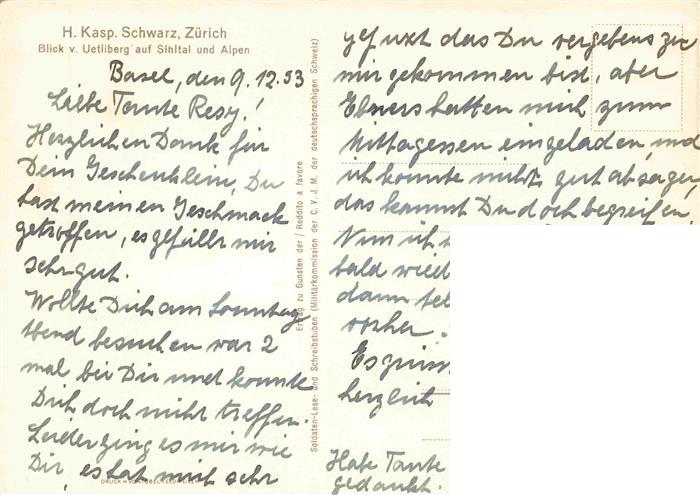 H. Kasp. Schwarz, Zürich
Blick v. Uetliberg auf Sihltal und Alpen
Basel, den 9.12.53
Liebe Tante Resy!
Herzlichen Dank für
Dein Geschenklein, Du
hast meinen Geschmack
getroffen, es gefällt mir
sehr gut.
Wollte Dich am Sonntag
Abend besuchen war 2
mal bei Dir und konnte
Dich doch nicht treffen.
Leider ging es mir wie
Dir, es hat mich sehr
Ertrag zu Gunsten der / Reddito a favore
Soldaten-Lese- und Schreibstuben (Militärkommission der C.V.J.M. der deutschsprachigen Schweiz)
gefuxt das Du vergebens zu
mir gekommen bist, aber
Ebners hatten mich zum
Mittagessen eingeladen, und
ich konnte nicht gut absagen,
das kannst Du doch begreifen,
Nun ich
bald wied
dann tel
vorher.
Es grüss
herzlich
Habe Tante
gedankt.